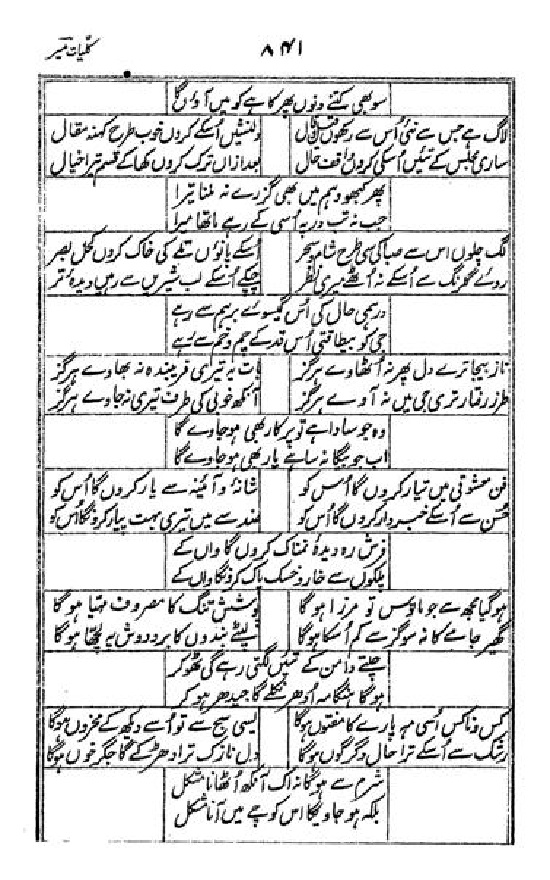 کلیات میر
۸۴۱
سو بھی کتنے دنوں پھر کا ہے کو میں آؤں گا
لاگ ہے جس سے نئی اُس سے رکھوں شاملِ حال دلنشیں اُسکے کروں خوب طرح کہنہ مقال
ساری مجلس کے تئیں اُسکی کروں واقف حال بعد ازاں ترک کروں کھا کے قسم تیرا خیال
پھر کبھو وہم میں بھی گزرے نہ ملنا تیرا
جب نہ تب در پہ اُسی کے رہے ماتھا میرا
لگ چلوں اس سے صبا کی سی طرح شام و سحر اُسکے پانوں تلے کی خاک کروں کحل بصر
روئے گلرنگ سے اُسکے نہ اُٹھے میری نظر چپکے اُسکے لب شیریں سے رہیں دیدۂ تر
درہمی حال کی اُس گیسوے برہم سے رہے
جی کو بیطاقتی اُس قد کے چم و خم سے رہے
ناز بیجا ترے دل پھر نہ اُٹھاوے ہرگز بات یہ تیری فریبندہ نہ بھاوے ہرگز
طرز رفتار تری جی میں نہ آوے ہرگز آنکھ خوبی کی طرف تیری نہ جاوے ہرگز
وہ جو سادا ہے تو پرکار بھی ہو جاوے گا
اب جو بیگانہ سا ہے یار بھی ہو جاوے گا
فن معشوقی میں تیار کروں گا اُس کو شانۂ و آئینہ سے یار کروں گا اُس کو
حُسن سے اُسکے خبردار کروں گا اُس کو ضد سے میں تیری بہت پیار کرونگا اُس کو
فرش رہ دیدۂ نمناک کروں گا واں کے
پلکوں سے خار و خسک پاک کرونگا واں کے
ہو گیا مجھ سے جو مانوس تو مرزا ہو گا پوشش تنگ کا مصروف مہیا ہو گا
گھیر جامے کا نہ سو گز سے کم اُسکا ہو گا لپٹے بندوں کا پر دوش پہ لچھا ہو گا
چلتے دامن کے تئیں لگتی رہے گی ٹھوکر
ہو گا ہنگامہ اُودھر نکلے گا جیدھر ہو کر
کس و ناکس اُسی مہ پارے کا مفتوں ہو گا ایسی سج سے تو اُسے دیکھ کے محزوں ہو گا
رشک سے اُسکے ترا حال دگرگوں ہو گا دل نازک ترا دھڑکے گا جگر خوں ہو گا
شرم سے ہو گا نہ اک آنکھ اُٹھانا مشکل
بلکہ ہو جاویگا اس کوچے میں آنا مشکل